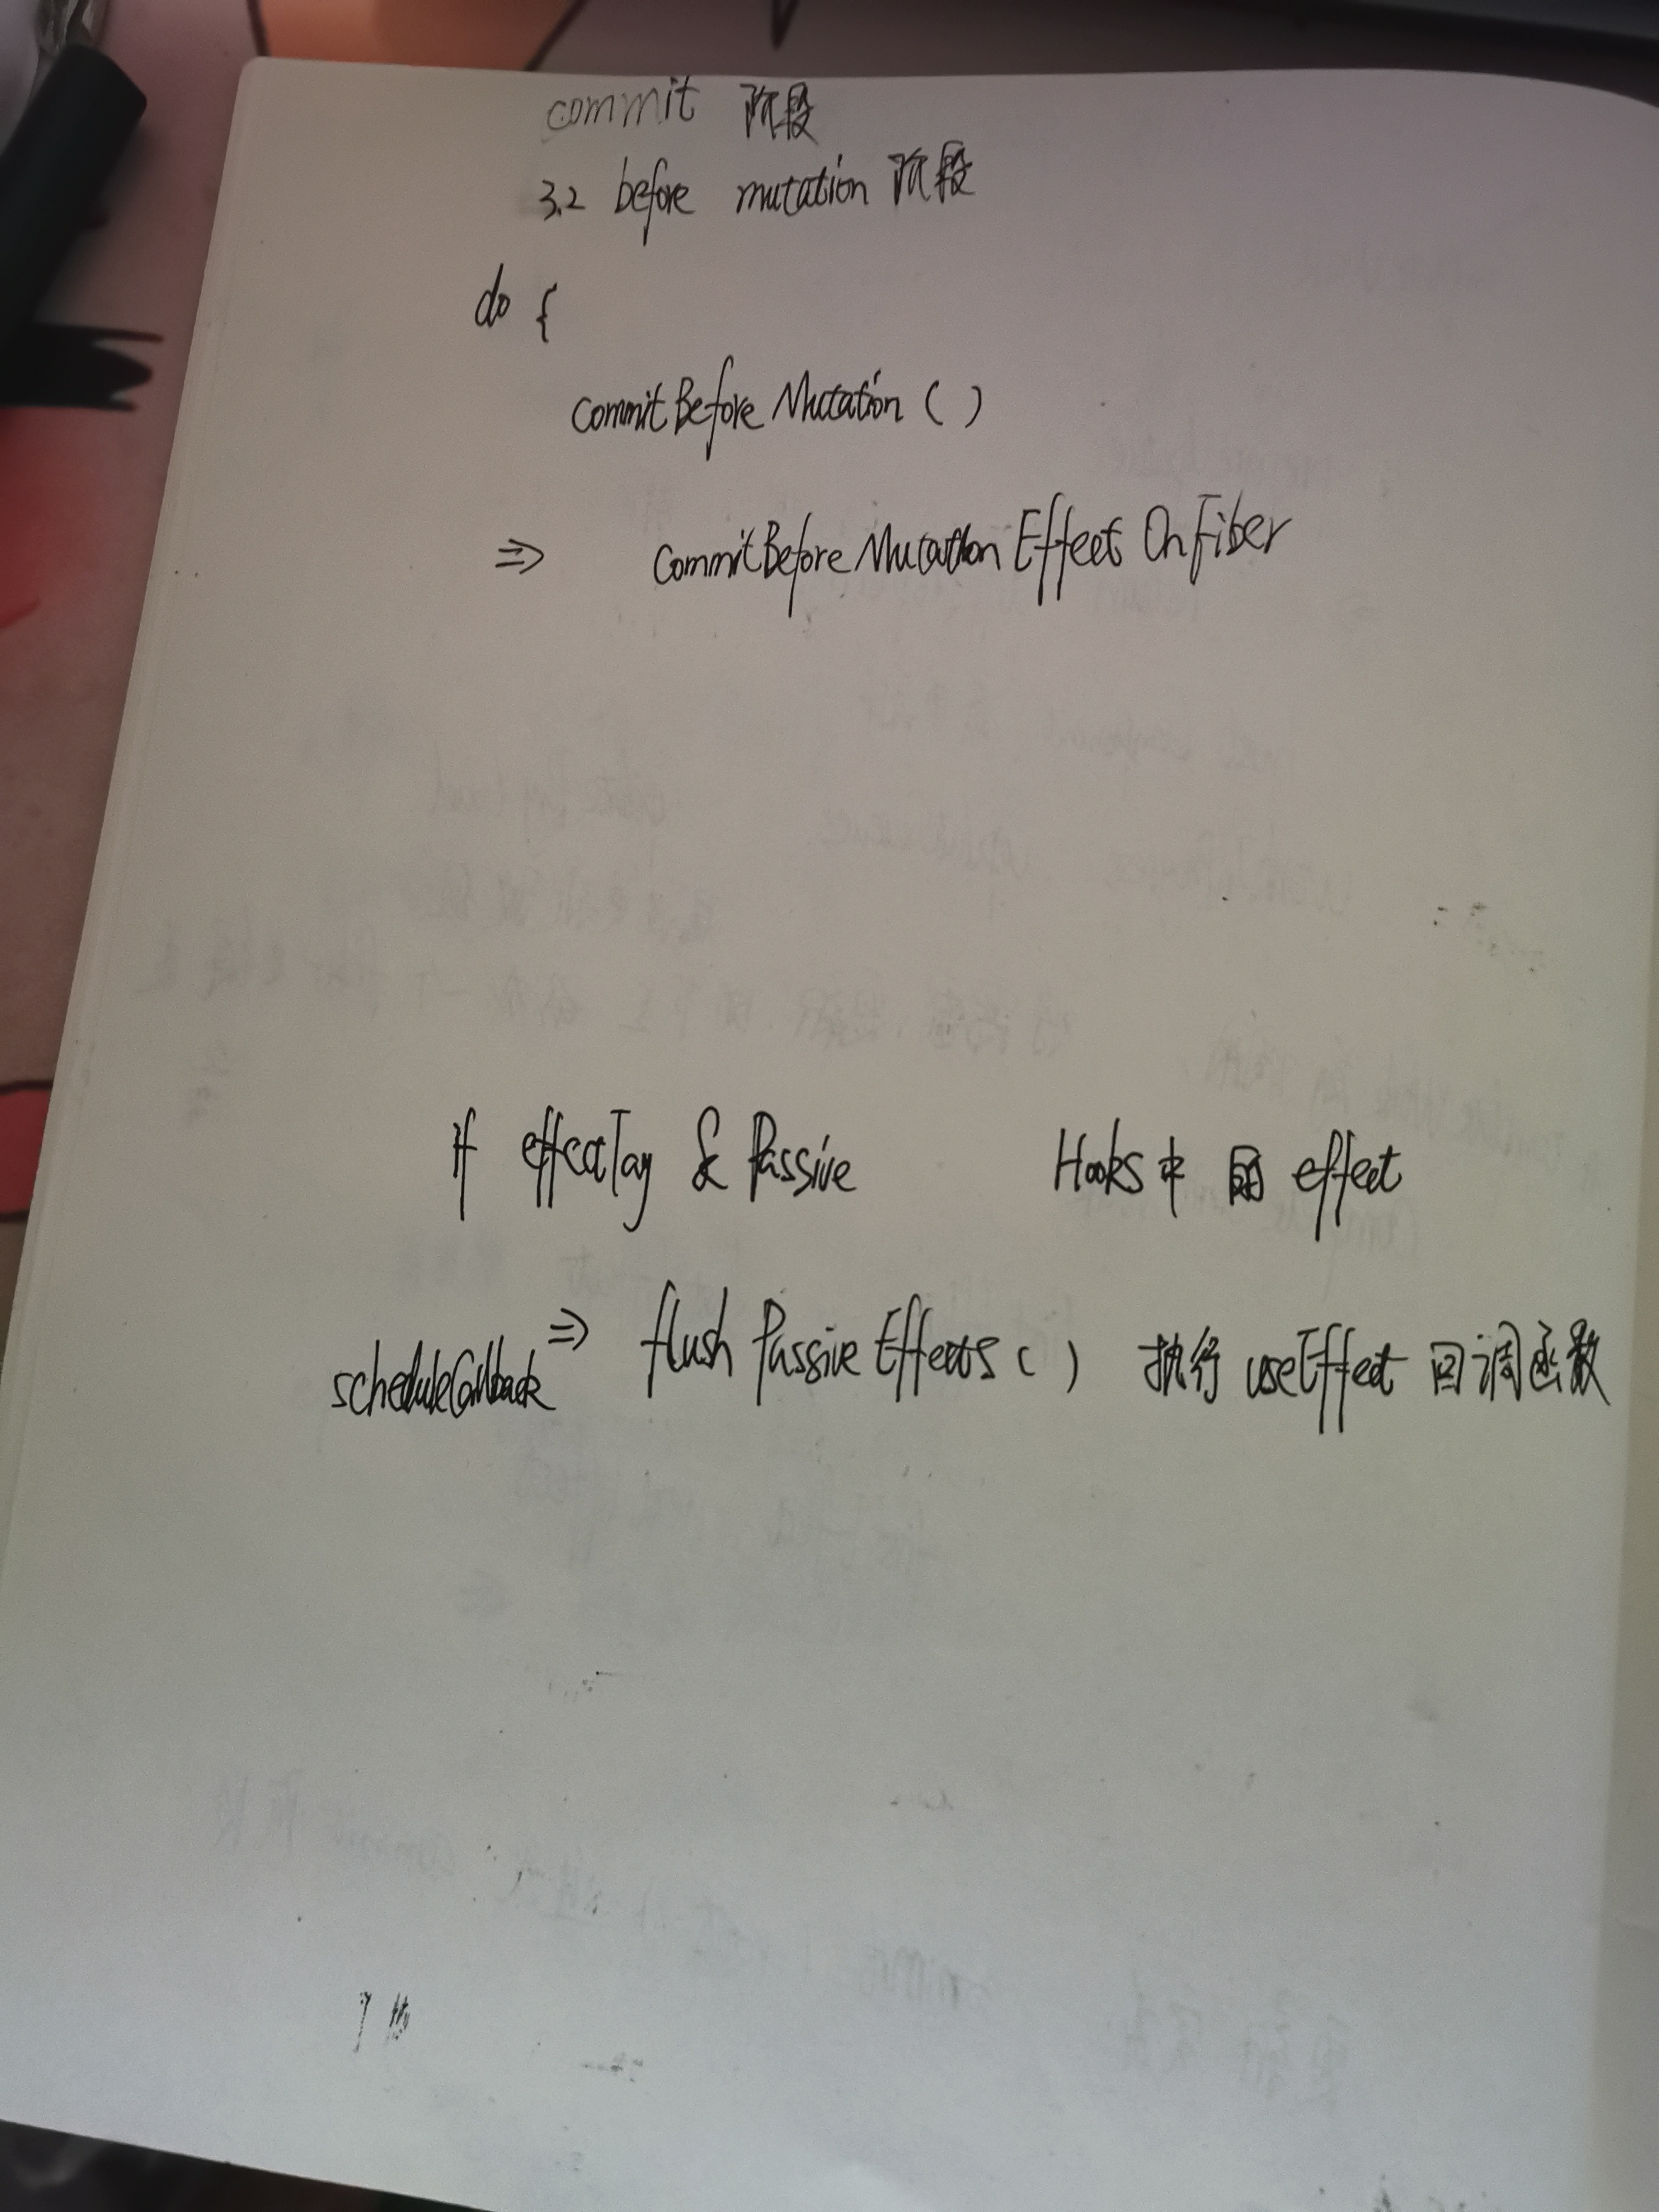 commit 阶段
3.2 before mutation 阶段
do {
commitBeforeMutation ( )
⇒ commitBeforeMutationEffectOnFiber
if effectTag & Passive Hooks中的 effect
scheduleCallback ⇒ flushPassiveEffects ( ) 执行 useEffect 回调函数